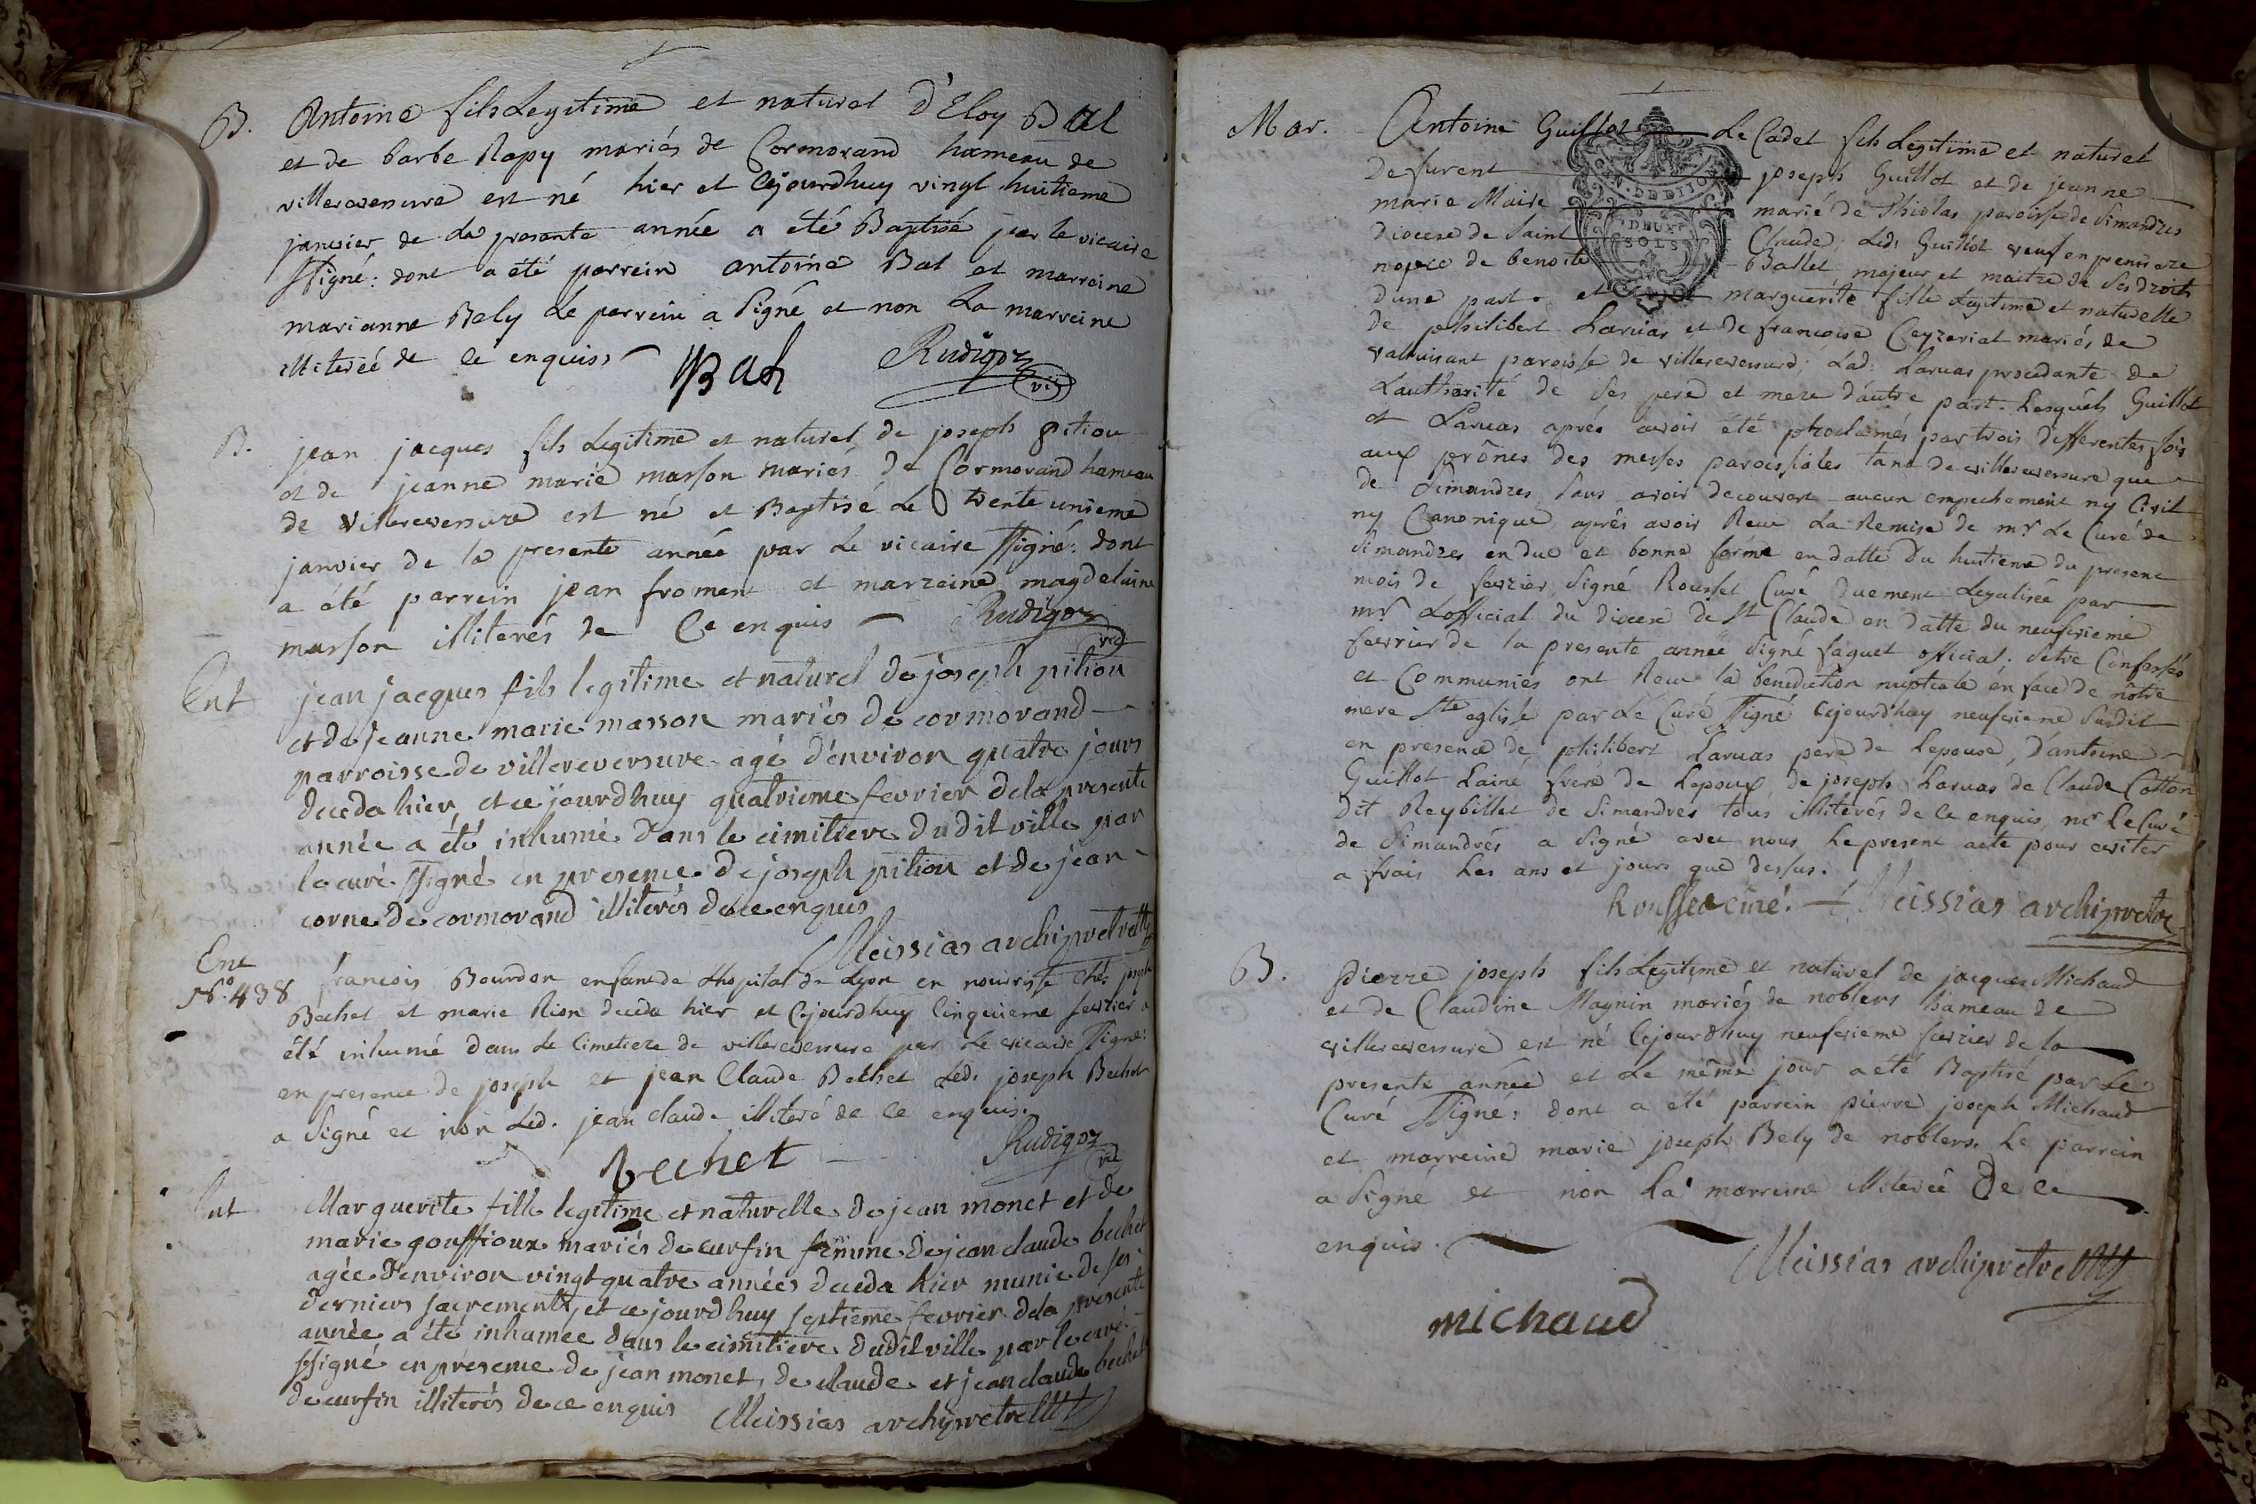 B. Antoine fils Legitime et naturel d'Eloy Bal
et de barbe Rapy mariés de Cormorand hameau de
villereversure est né hier et Cejourdhuy vingt huitieme
janvier de la presente année a été Baptisé par le vicaire
ssigné: dont a été parrein antoine Bal et marreine
marianne Bely Le parrein a signé et non La marreine
illiterée de ce enquis
Bal Rudigoz vic
B. jean jacques fils Legitime et naturel de joseph pitiou
et de jeanne marie masson mariés de Cormorand hameau
de villereversure est né et Baptisé Le trente unieme
janvier de la presente année par Le vicaire ssigné: dont
a été parrein jean froment et marreine magdelaine
masson illiterés de Ce enquis Rudigoz
vic
Ent jean jacques fils legitime et naturel de joseph pitiou
et de jeanne marie masson mariés de cormorand
parroisse de villereversure agé d'environ quatre jours
deceda hier, et ce jourdhuy quatrieme fevrier dela presente
année a été inhumé dans le cimitiere dudit ville par
le curé ssigné en presence de joseph pitiou et de jean
corne de cormorand illiterés dece enquis
Meissias archipretre
Ent
N.º 438 francois Bourdon enfant de Lhopital de Lyon en nourrisse chés joseph
Bechet et marie Rion deceda hier et Cejourdhuy Cinquieme fevrier a
été inhumé dans Le Cimetiere de villereversure par Le vicaire ssigné:
en presence de joseph et jean Claude Bechet Led. joseph Bechet
a signé et non Led. jean claude illiteré de ce enquis.
Bechet Rudigoz
vic
Ent Marguerite fille legitime et naturelle de jean monet et de
marie gouffioux mariés de curfin femme de jean claude bechet
agée d'environ vingt quatre années deceda hier munie de ses
derniers sacrements, et ce jourdhuy septieme fevrier dela presente
année a été inhumée dans le cimitiere dudit ville par le curé
ssigné en presence de jean monet, de claude et jean claude bechet
de curfin illiterés dece enquis Meissias archipretre
Mar. Antoine Guillot Le Cadet fils Legitime et naturel
De furent joseph Guillot et de jeanne
marie Maire marié de Thiolas paroisse de Simandres
Diocese de Saint Claude; Led. Guillot veuf en premiere
nopce de benoite Ballet majeur et maitre de ses Droits
dune part. et marguerite fille Legitime et naturelle
GEN. DEDIION
DEUX
SOLS
de philibert Laruas et de francoise Ceyzeriat mariés de
valuisant paroisse de villereversure; Lad. Laruas procedante de
Lauthorité de ses pere et mere d'autre part. Lesquels Guillot
et Laruas aprés avoir été proclamés par trois differentes fois
aux prônes des messes paroissiales tant de villereversure que
de Simandres sans avoir decouvert aucun empechement ny Civil
ny Canonique, aprés avoir Reçu La Remise de mr. Le Curé de
Simandres en due et bonne forme en datte du huitieme du present
mois de fevrier, signé Rousset Curé duement Legalisée par
mr. Lofficial du diocese de St Claude en datte du neufvieme
fevrier de la presente année signé faguet official. Setre Confessés
et Communiés ont Recu la benediction nuptiale en face de nôtre
mere Ste eglise par Le Curé ssigné Cejourd'huy neufvieme susdit
en presence de philibert Laruas pere de Lepouse, d'antoine
Guillot Lainé frere de Lepoux, de joseph Laruas de Claude Cotton
dit Reybillet de Simandres tous illiterés de ce enquis, mr. Le Curé
de Simandrés a signé avec nous Le present acte pour eviter
a frais Les ans et jours que dessus.
Rousset curé. Meissias archipretre
B. Pierre joseph fils Legitime et naturel de jacques Michaud
et de Claudine Magnin mariés de noblens hameau de
villereversure est né Cejourdhuy neufvieme fevrier de la
presente année et Le même jour a été Baptisé par Le
Curé ssigné: dont a été parrein pierre joseph Michaud
et marreine marie joseph Bely de noblens. Le parrein
a signé et non La marreine illiterée de ce
enquis.
Meissias archipretre
michaud